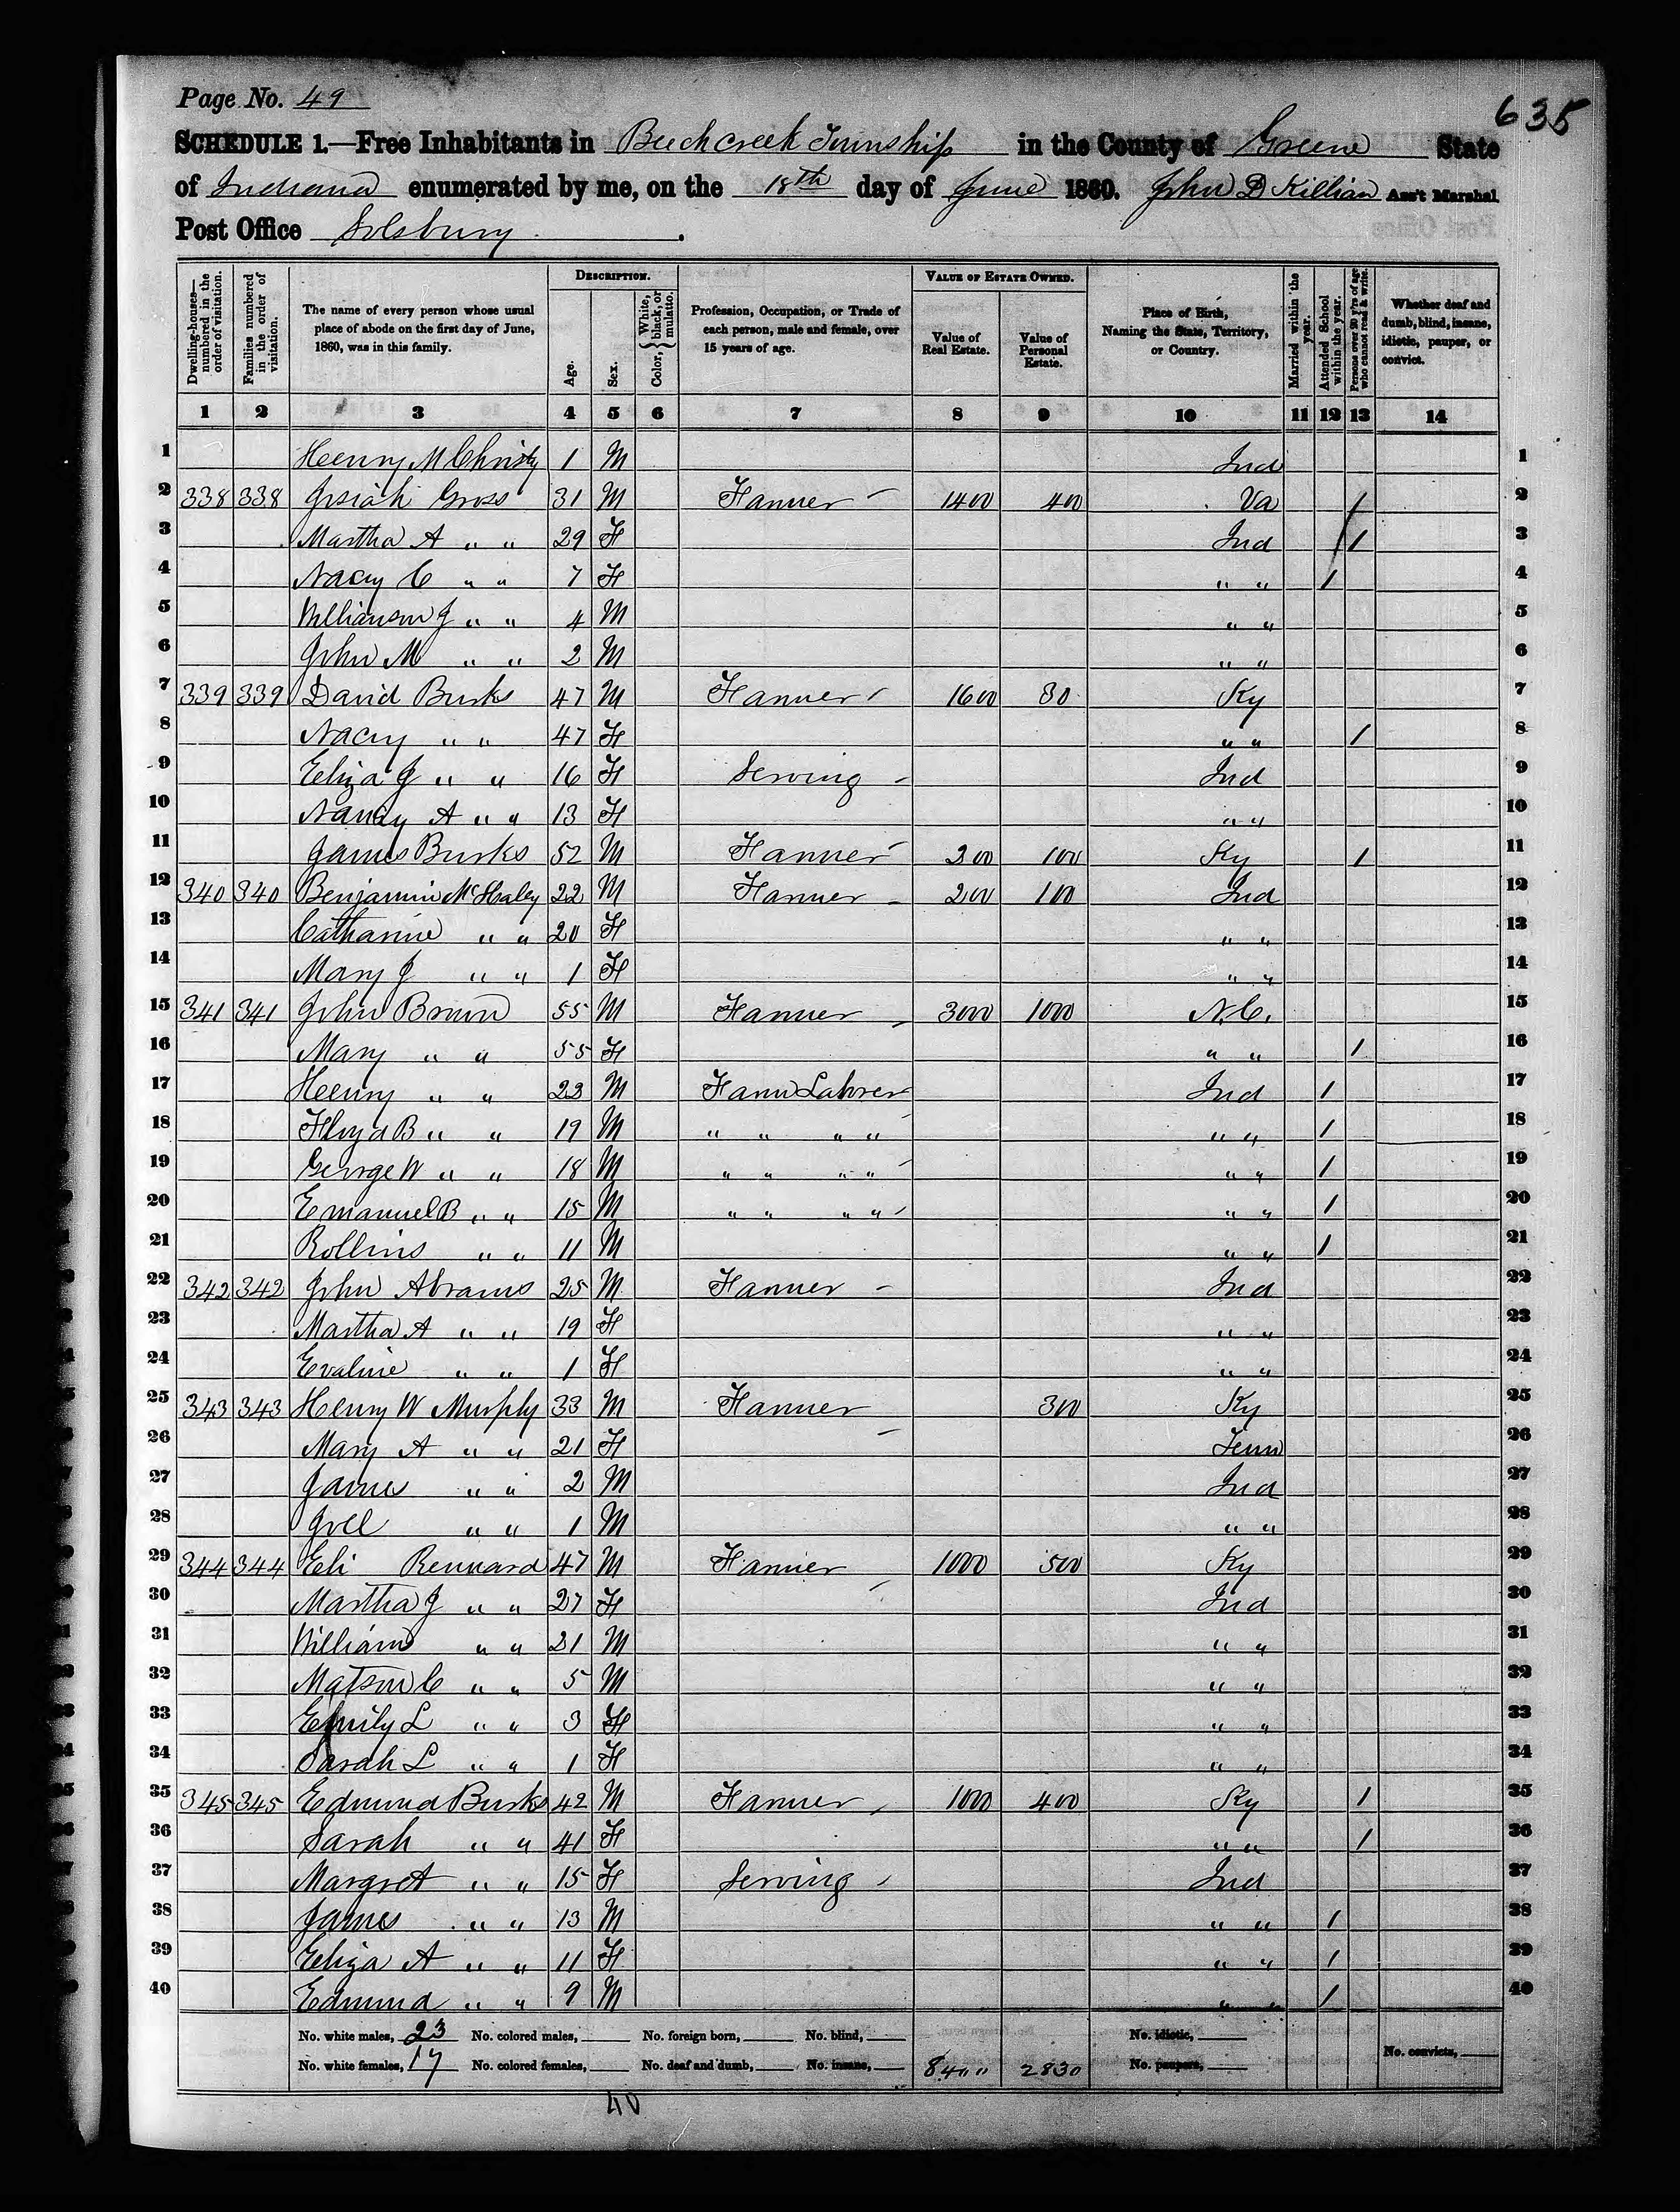 Page No. 49
635
SCHEDULE 1.—Free Inhabitants in Beechcreek Township in the County of Greene State
of Indiana enumerated by me, on the 18th day of June 1860. John D Killian Ass't Marshal.
Post Office Solsbury.
Dwelling-houses—numbered in the order of visitation.
Families numbered in the order of visitation.
The name of every person whose usual place of abode on the first day of June, 1860, was in this family.
DESCRIPTION.
Age.
Sex.
Color, { White, black, or mulatto.
Profession, Occupation, or Trade of each person, male and female, over 15 years of age.
VALUE OF ESTATE OWNED.
Value of Real Estate.
Value of Personal Estate.
Place of Birth, Naming the State, Territory, or Country.
Married within the year.
Attended School within the year.
Persons over 20 y'rs of age who cannot read & write.
Whether deaf and dumb, blind, insane, idiotic, pauper, or convict.
1 2 3 4 5 6 7 8 9 10 11 12 13 14
1 Henry M Christy 1 M Ind 1
2 338 338 Josiah Gross 31 M Farmer 1400 400 Va / 2
3 Martha A " " 29 F Ind / 3
4 Nacy C " " 7 F " " / 4
5 Williamson J " " 4 M " " 5
6 John M " " 2 M " " 6
7 339 339 David Burks 47 M Farmer 1600 30 Ky 7
8 Nacy " " 47 F " " / 8
9 Eliza J " " 16 F Serving Ind 9
10 Nancy A " " 13 F " " 10
11 James Burks 52 M Farmer 200 100 Ky / 11
12 340 340 Benjamin McHaley 22 M Farmer 200 100 Ind 12
13 Catharine " " 20 F " " 13
14 Mary J " " 1 F " " 14
15 341 341 John Brown 55 M Farmer 3000 1000 N.C. 15
16 Mary " " 55 F " " / 16
17 Henry " " 23 M Farm Labrer Ind / 17
18 Floyd B " " 19 M " " " " " " / 18
19 George W " " 18 M " " " " " " / 19
20 Emanuel B " " 15 M " " " " " " / 20
21 Rollins " " 11 M " " / 21
22 342 342 John Abrams 25 M Farmer Ind 22
23 Martha A " " 19 F " " 23
24 Evaline " " 1 F " " 24
25 343 343 Henry W Murphy 33 M Farmer 300 Ky 25
26 Mary A " " 21 F Tenn 26
27 James " " 2 M Ind 27
28 Joel " " 1 M " " 28
29 344 344 Eli Rennard 47 M Farmer 1000 500 Ky 29
30 Martha J " " 27 F Ind 30
31 William " " 21 M " " 31
32 Matson C " " 5 M " " 32
33 Emily L " " 3 F " " 33
34 Sarah L " " 1 F " " 34
35 345 345 Edmund Burks 42 M Farmer 1000 400 Ky / 35
36 Sarah " " 41 F " " / 36
37 Margret " " 15 F Serving Ind 37
38 James " " 13 M " " / 38
39 Eliza A " " 11 F " " / 39
40 Edmund " " 9 M " " / 40
No. white males, 23 No. colored males, No. foreign born, No. blind, No. idiotic,
No. white females, 17 No. colored females, No. deaf and dumb, No. insane, 8400 2830 No. paupers, No. convicts,
40